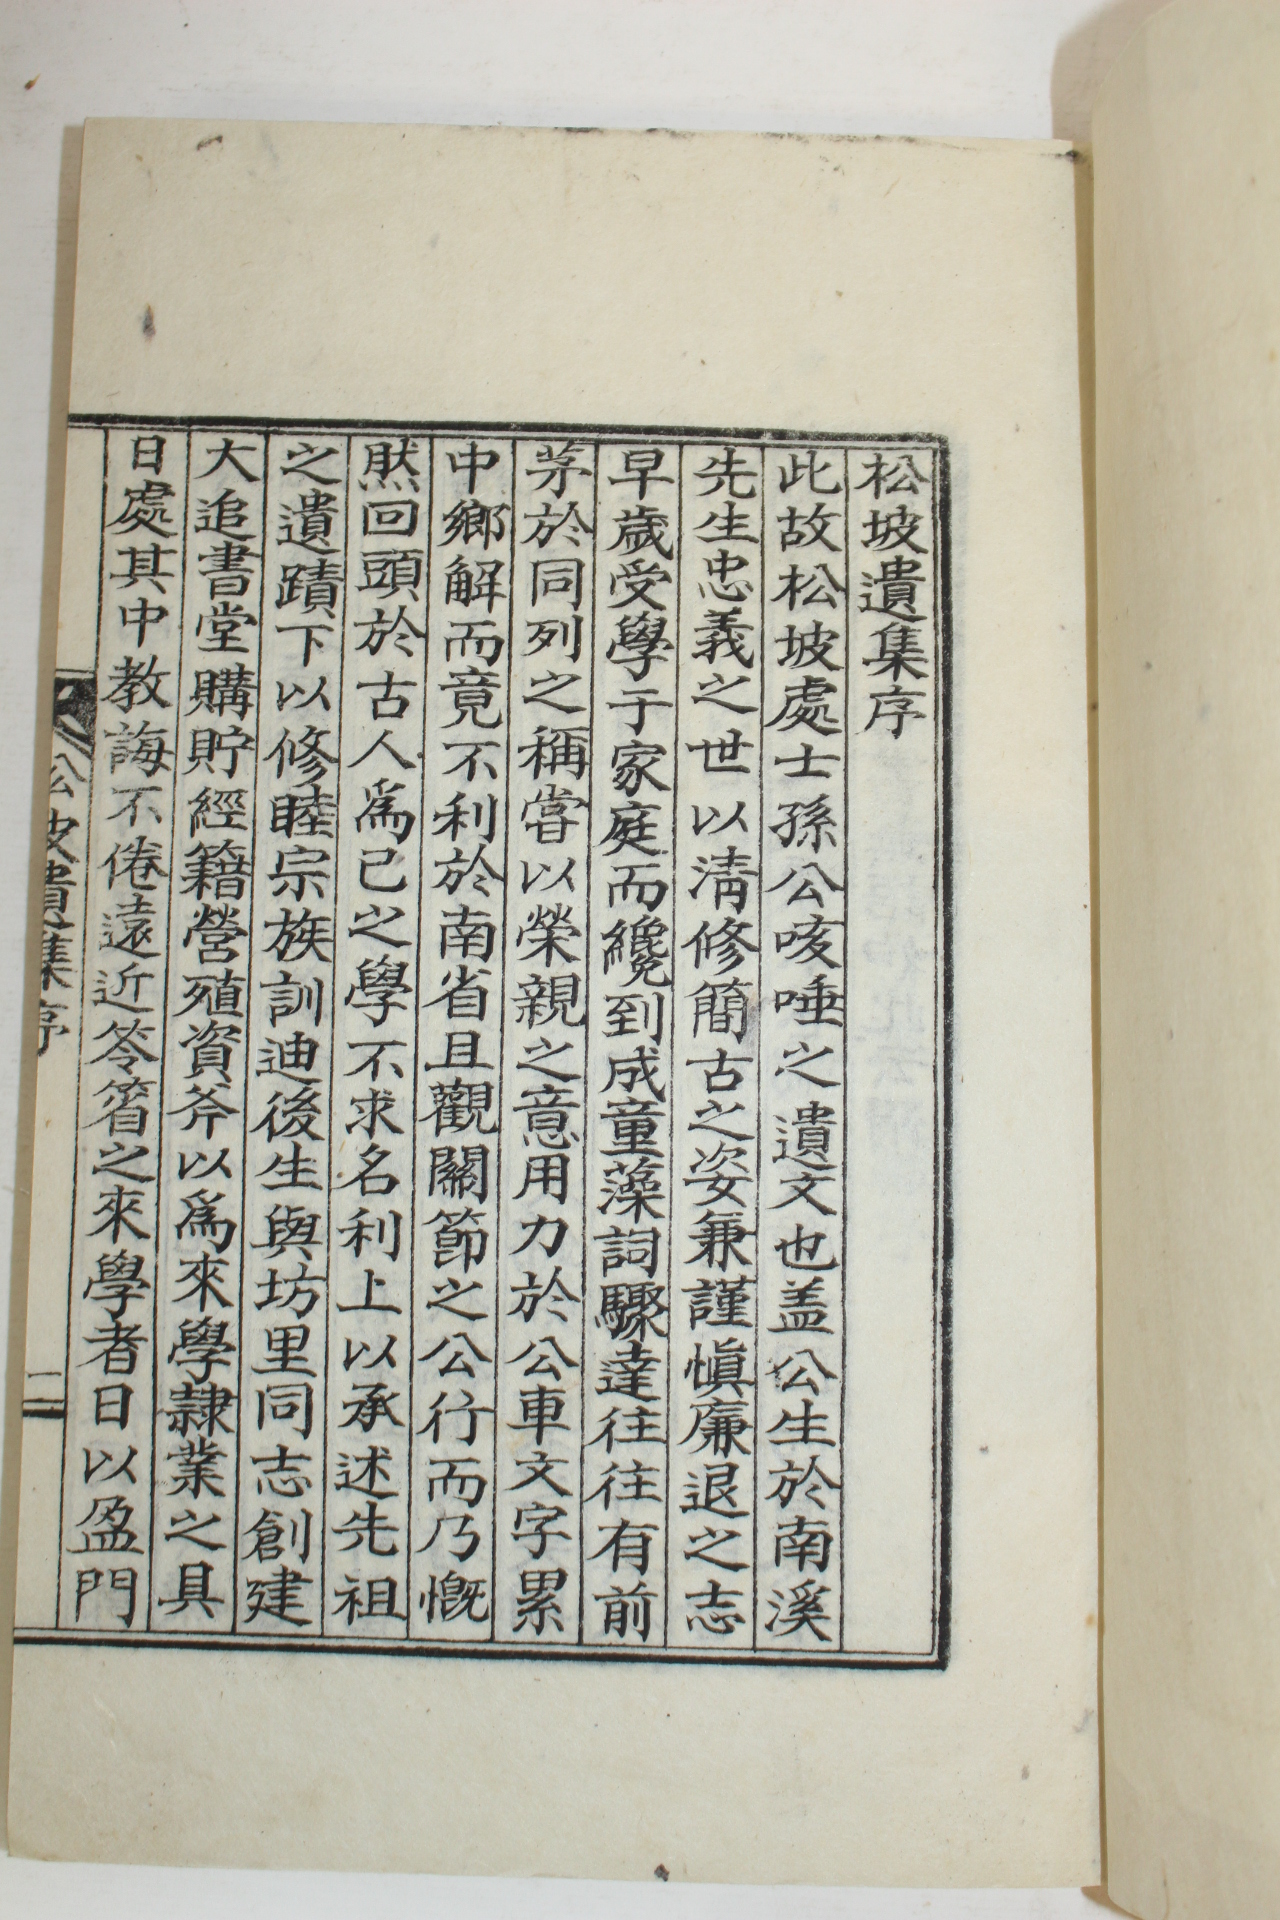 松坡遺集序
此故松坡處士孫公咳唾之遺文也盖公生於南溪
先生忠義之世以淸修簡古之姿兼謹愼廉退之志
早歲受學于家庭而纔到成童藻詞驟達往往有前
茅於同列之稱嘗以榮親之意用力於公車文字累
中鄕解而竟不利於南省且觀關節之公行而乃慨
然回頭於古人爲己之學不求名利上以承述先祖
之遺蹟下以修睦宗族訓迪後生與坊里同志創建
大追書堂購貯經籍營殖資斧以爲來學隷業之具
日處其中教誨不倦遠近笭箵之來學者日以盈門
松坡遺集序